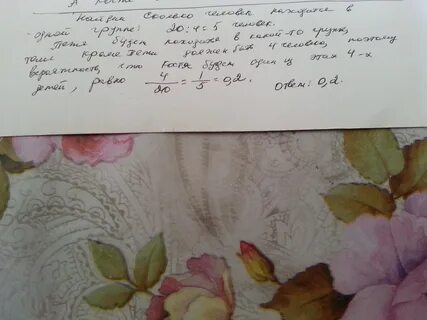 Найдём сколько человек находится в
одной группе: 20:4=5 человек.
Петя будет находится в какой-то группе, поэтому
там кроме Пети должен быть 4 человека,
вероятность, что Костя будет один из этих 4-х
детей, равно 4/20 = 1/5 = 0,2. Ответ: 0,2.